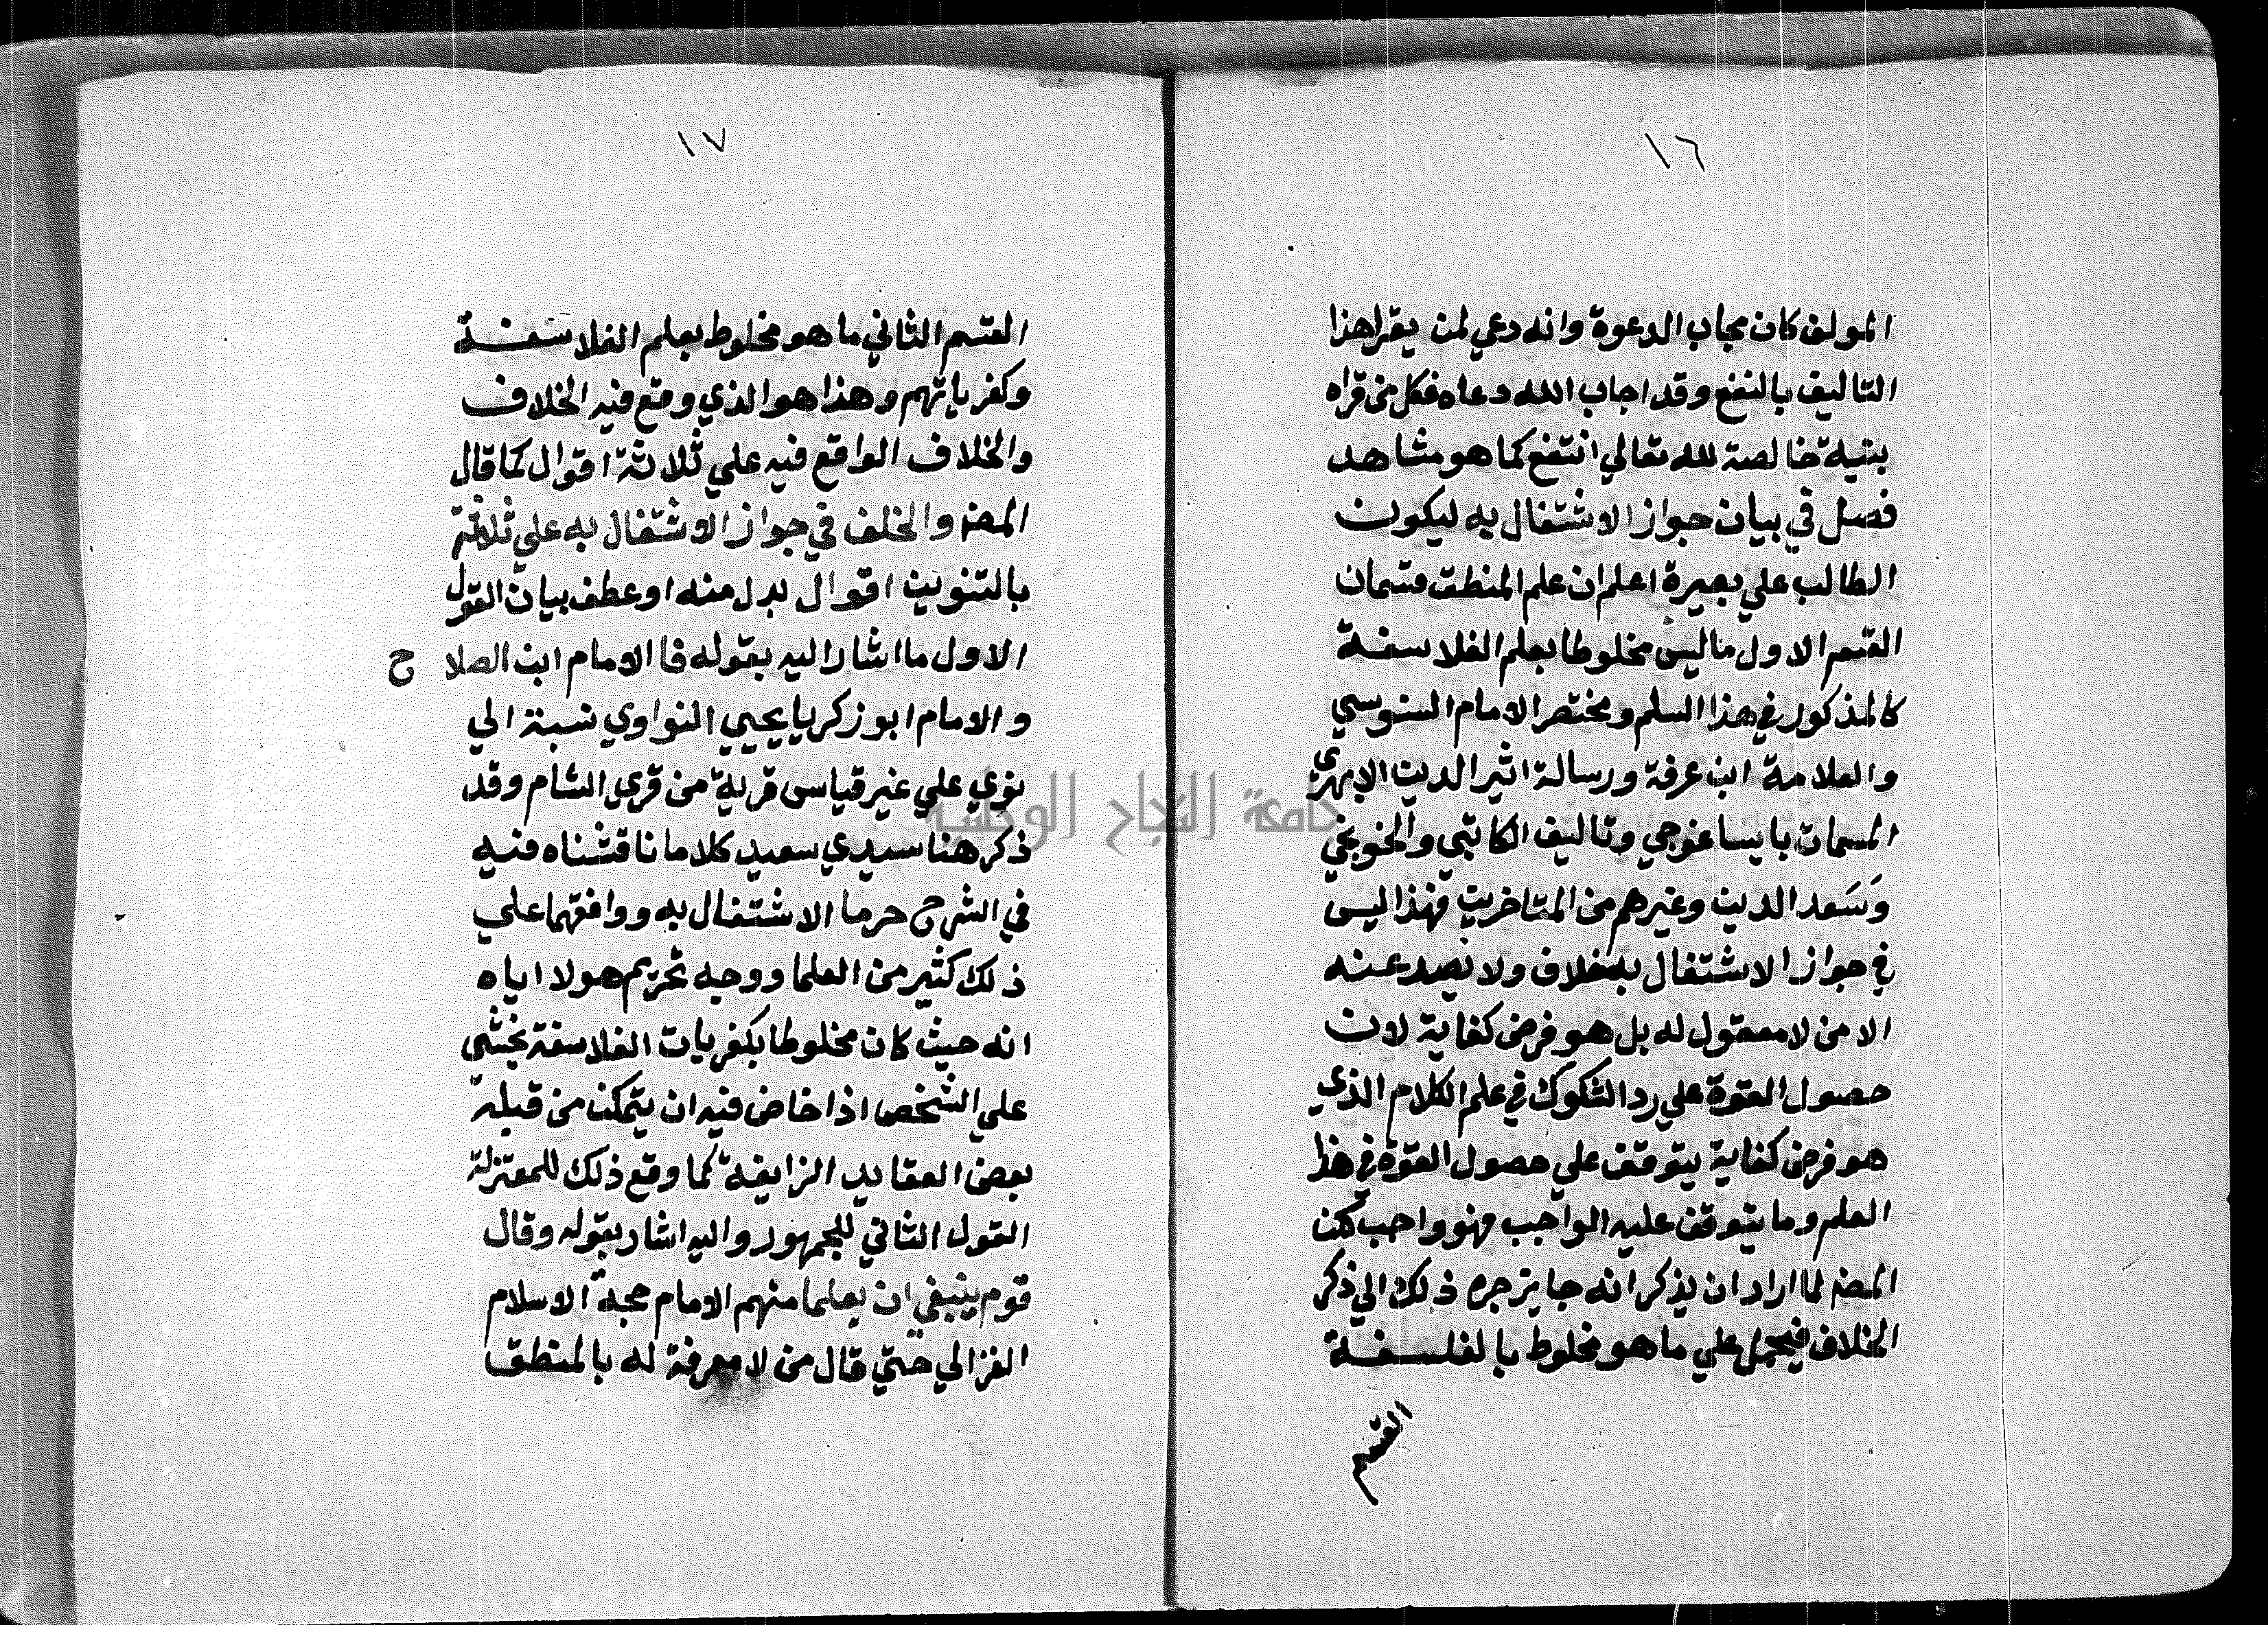 ١٦
المولف كان مجاب الدعوة وانه دعي لمن يقرا هذا
التاليف بالنفع وقد اجاب الله دعاه فكل من قراه
بنية خالصة لله تعالي انتفع كما هو مشاهد
فصل في بيان جواز الاشتغال به ليكون
الطالب علي بصيرة اعلم ان علم المنطق قسمان
القسم الاول ما ليس مخلوطا بعلم الفلاسفة
كالمذكور في هذا السلم ومختصر الامام السنوسي
والعلامة ابن عرفة ورسالة اثير الدين الابهري
المسمات بايساغوجي وتاليف الكاتبي والخونجي
وسَعد الدين وغيرهم من المتاخرين فهذا ليس
في جواز الاشتغال به خلاف ولا يصد عنه
الا من لا معقول له بل هو فرض كفاية لان
حصول القوة علي رد الشكوك في علم الكلام الذي
هو فرض كفاية يتوقف علي حصول القوة في هذا
العلم وما يتوقف عليه الواجب فهو واجب لكن
المص لما اراد ان يذكر انه جايز جره ذلك الي ذكر
الخلاف فيحمل علي ما هو مخلوط بالفلسفة
القسم
١٧
القسم الثاني ما هو مخلوط بعلم الفلاسفة
وكفرياتهم وهذا هو الذي وقع فيه الخلاف
والخلاف الواقع فيه علي ثلاثة اقوال كما قال
المص والخلف في جواز الاشتغال به علي ثلاثة
بالتنوين اقوال بدل منه او عطف بيان القول
الاول ما اشار اليه بقوله فا الامام ابن الصلا ح
والامام ابو زكريا يحيي النواوي نسبة الي
نوي علي غير قياس قرية من قري الشام وقد
ذكر هنا سيدي سعيد كلاما ناقشناه فيه
في الشرح حرما الاشتغال به ووافقهما علي
ذلك كثير من العلما ووجه تحريم هولا اياه
انه حيث كان مخلوطا بكفريات الفلاسفة يخشي
علي الشخص اذا خاض فيه ان يتمكن من قبله
بعض العقايد الزايغة كما وقع ذلك للمعتزلة
القول الثاني للجمهور واليه اشار بقوله وقال
قوم ينبغي ان يعلما منهم الامام حجة الاسلام
الغزالي حتي قال من لا معرفة له بالمنطق
جامعة النجاح الوطنية